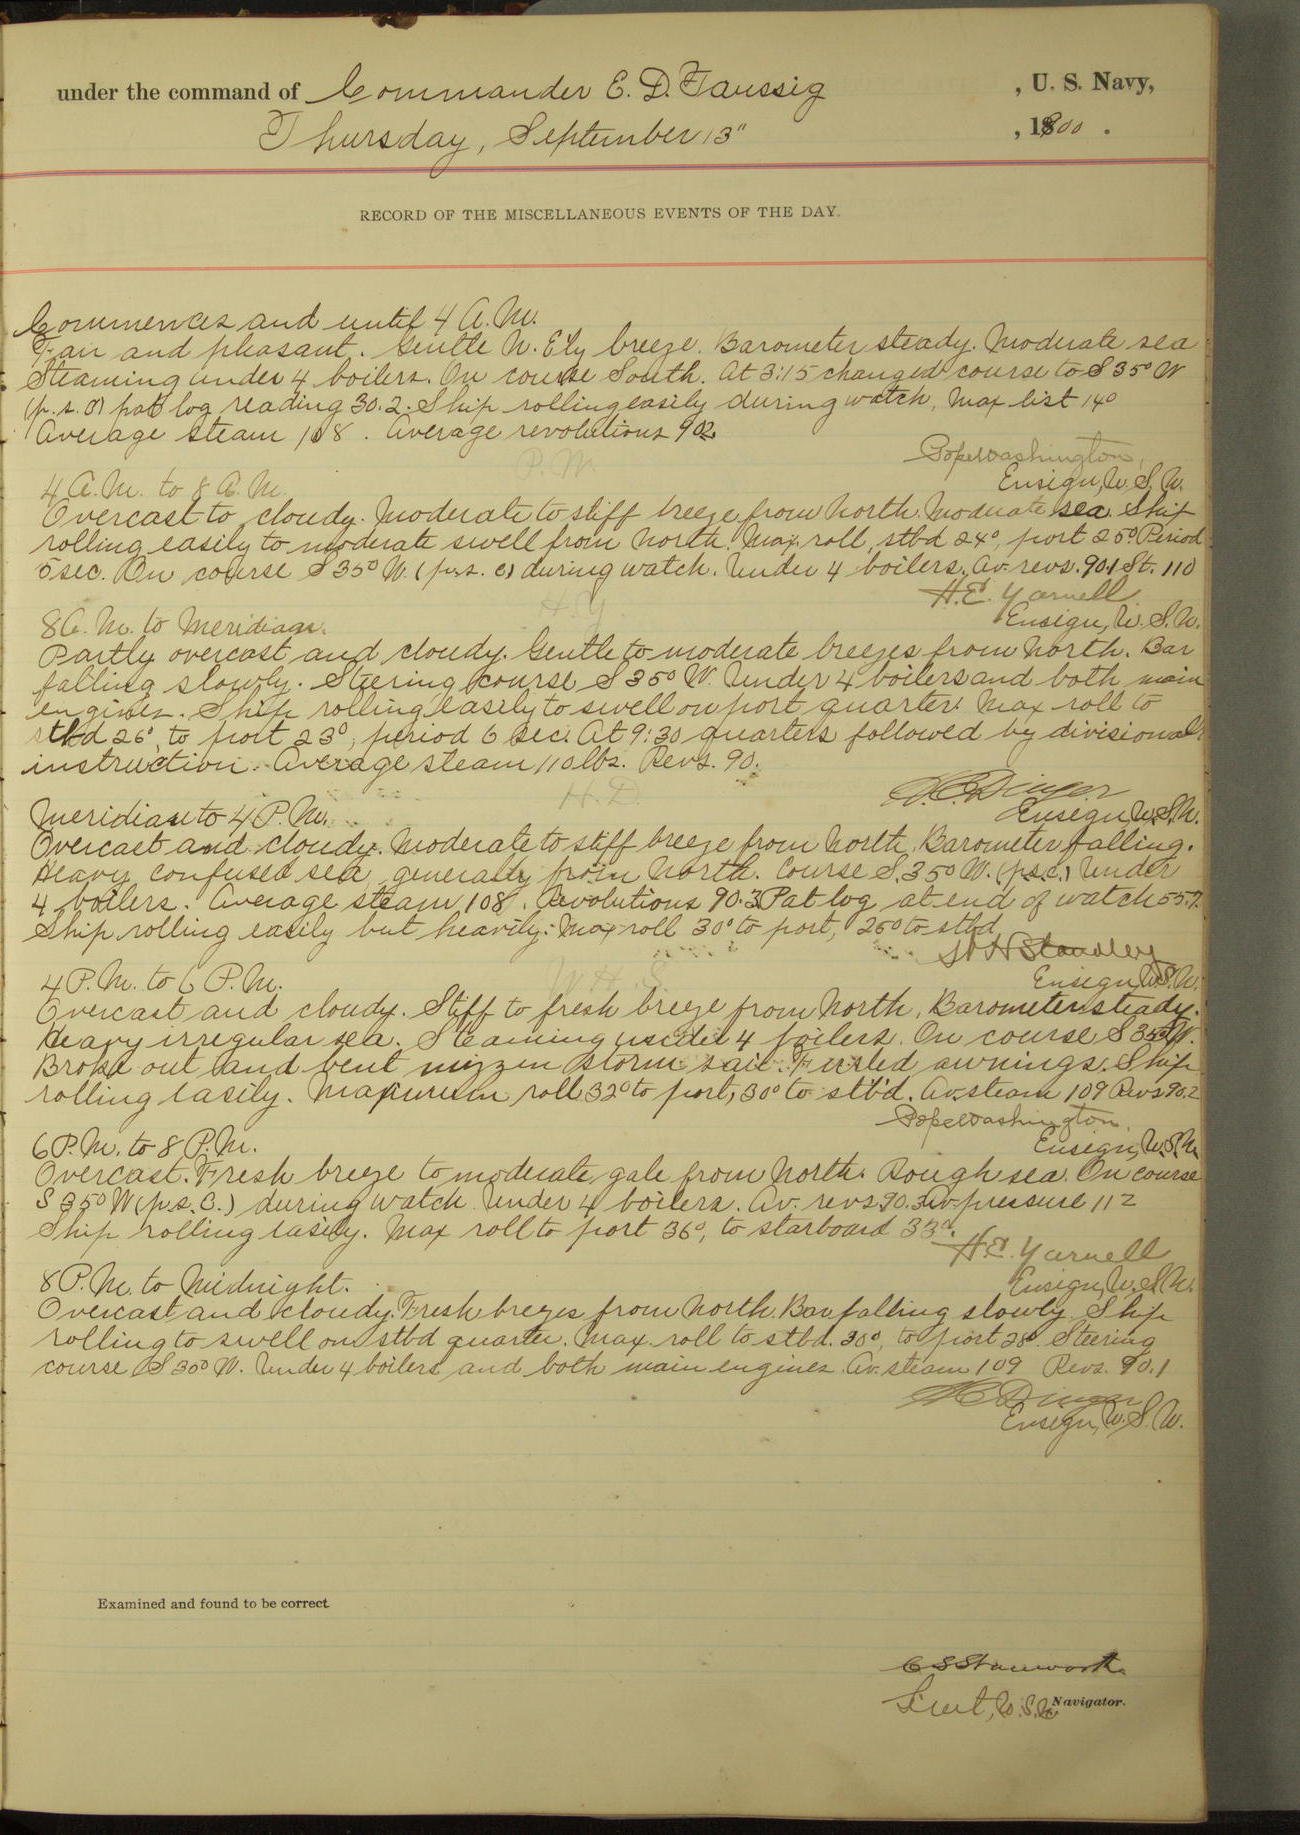 under the command of Commander E. D. Taussig , U. S. Navy,
Thursday, September 13" , 1900 .
RECORD OF THE MISCELLANEOUS EVENTS OF THE DAY.
Commences and until 4 A.M.
Fair and pleasant. Gentle N. Ely breeze. Barometer steady. Moderate sea
Steaming under 4 boilers. On course South. At 3:15 changed course to S 35° W
(p.s.c) pat log reading 30.2. Ship rolling easily during watch, Max list 14°
Average steam 108. Average revolutions 90.2
P.W.
Pope Washington,
Ensign, U.S.N.
4 A.M. to 8 A.M.
Overcast to cloudy. Moderate to stiff breeze from North. Moderate sea. Ship
rolling easily to moderate swell from North. Max. roll, stbd 24°, port 25° Period
6 sec. On course S 35° W. (p.s.c) during watch. Under 4 boilers. Av. revs. 90.1 St. 110
H.E. Yarnell
H.E.Y.
Ensign, U.S.N.
8 A.M. to Meridian.
Partly overcast and cloudy. Gentle to moderate breezes from North. Bar
falling slowly. Steering course S 35° W. Under 4 boilers and both main
engines. Ship rolling easily to swell on port quarter. Max roll to
stbd 26°, to port 23°, period 6 sec. At 9:30 quarters followed by divisional
instruction. Average steam 110 lbs. Revs. 90.
H.D.
H.C. Dinger
Ensign, U.S.N.
Meridian to 4 P.M.
Overcast and cloudy. Moderate to stiff breeze from North. Barometer falling.
Heavy confused sea, generally from North. Course S. 35° W. (p.s.c.) Under
4 boilers. Average steam 108. Revolutions 90.3 Pat log at end of watch 55.7.
Ship rolling easily but heavily. Max roll 30° to port, 25° to stbd
W H Standley
W.H.S.
Ensign, U.S.N.
4 P.M. to 6 P.M.
Overcast and cloudy. Stiff to fresh breeze from North, Barometer steady.
Heavy irregular sea. Steaming under 4 boilers. On course S 35° W.
Broke out and bent mizzen storm sail. Furled awnings. Ship
rolling easily. Maximum roll 32° to port, 30° to stb'd. Av. steam 109 Revs 90.2
Pope Washington,
Ensign, U.S.N.
6 P.M. to 8 P.M.
Overcast. Fresh breeze to moderate gale from North. Rough sea. On course
S 35° W (p.s.c.) during watch. Under 4 boilers. Av. revs 90.3 Av. pressure 112
Ship rolling easily. Max roll to port 36°, to starboard 33°.
H.E. Yarnell
Ensign, U.S.N.
8 P.M. to Midnight.
Overcast and cloudy. Fresh breezes from North. Bar falling slowly. Ship
rolling to swell on stbd quarter. Max. roll to stbd. 30°, to port 28°. Steering
course S 30° W. Under 4 boilers and both main engines. Av. steam 109 Revs. 90.1
H C Dinger
Ensign, U.S.N.
Examined and found to be correct
C S Stanworth
Lieut, U.S.N. Navigator.